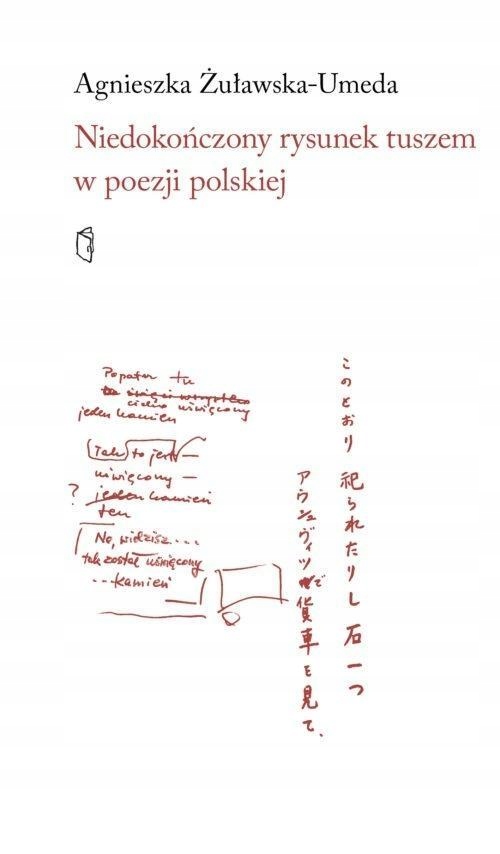 Agnieszka Żuławska-Umeda
Niedokończony rysunek tuszem
w poezji polskiej
Popatrz tu
cicho uświęcony
jeden kamień
(Tak) to jest —
uświęcony —
? jeden kamień
ten
No, widzisz...
tak został uświęcony
...kamień
このとおり 祀られたりし 石一つ
アウシュヴィツで貨車を見て.